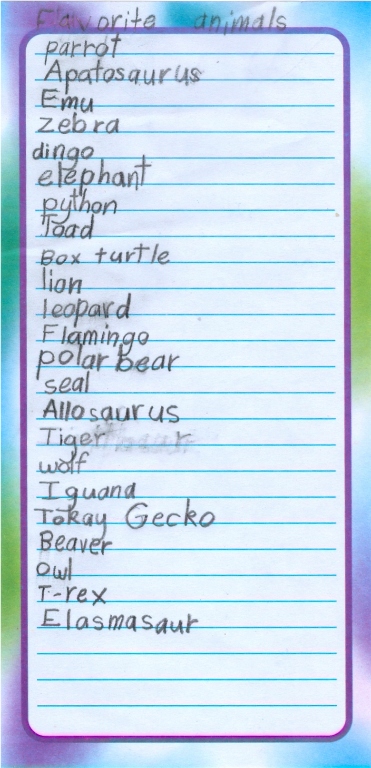 Flavorite animals
parrot
Apatosaurus
Emu
zebra
dingo
elephant
python
Toad
Box turtle
lion
leopard
Flamingo
polar bear
seal
Allosaurus
Tiger
wolf
Iguana
Tokay Gecko
Beaver
owl
T-rex
Elasmasaur